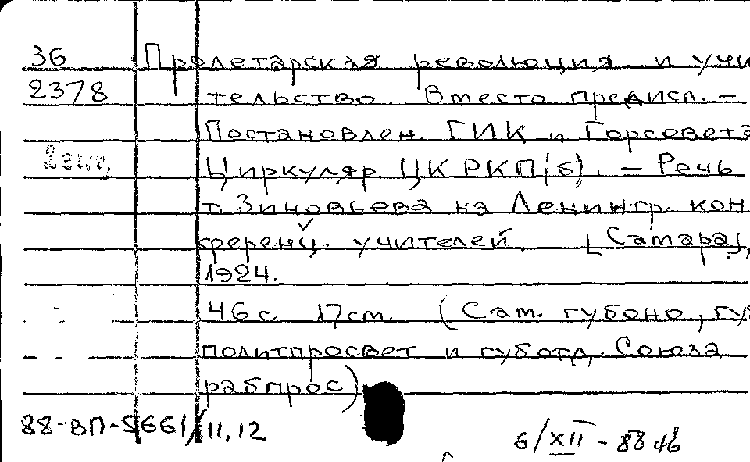 36 Пролетарская революция и учи
2378 тельство. Вместо предисл. –
Постановлен. ГИК и Горсовета
2 экз. Циркуляр ЦК РКП(б). – Речь
т. Зиновьева на Ленингр. кон
ференц. учителей. [Самара],
1924.
46 с. 17 см. (Сам. губоно, гу
политпросвет и губотд. Союза
рабпрос)
88-ВП-5661/11,12
6/XII - 88